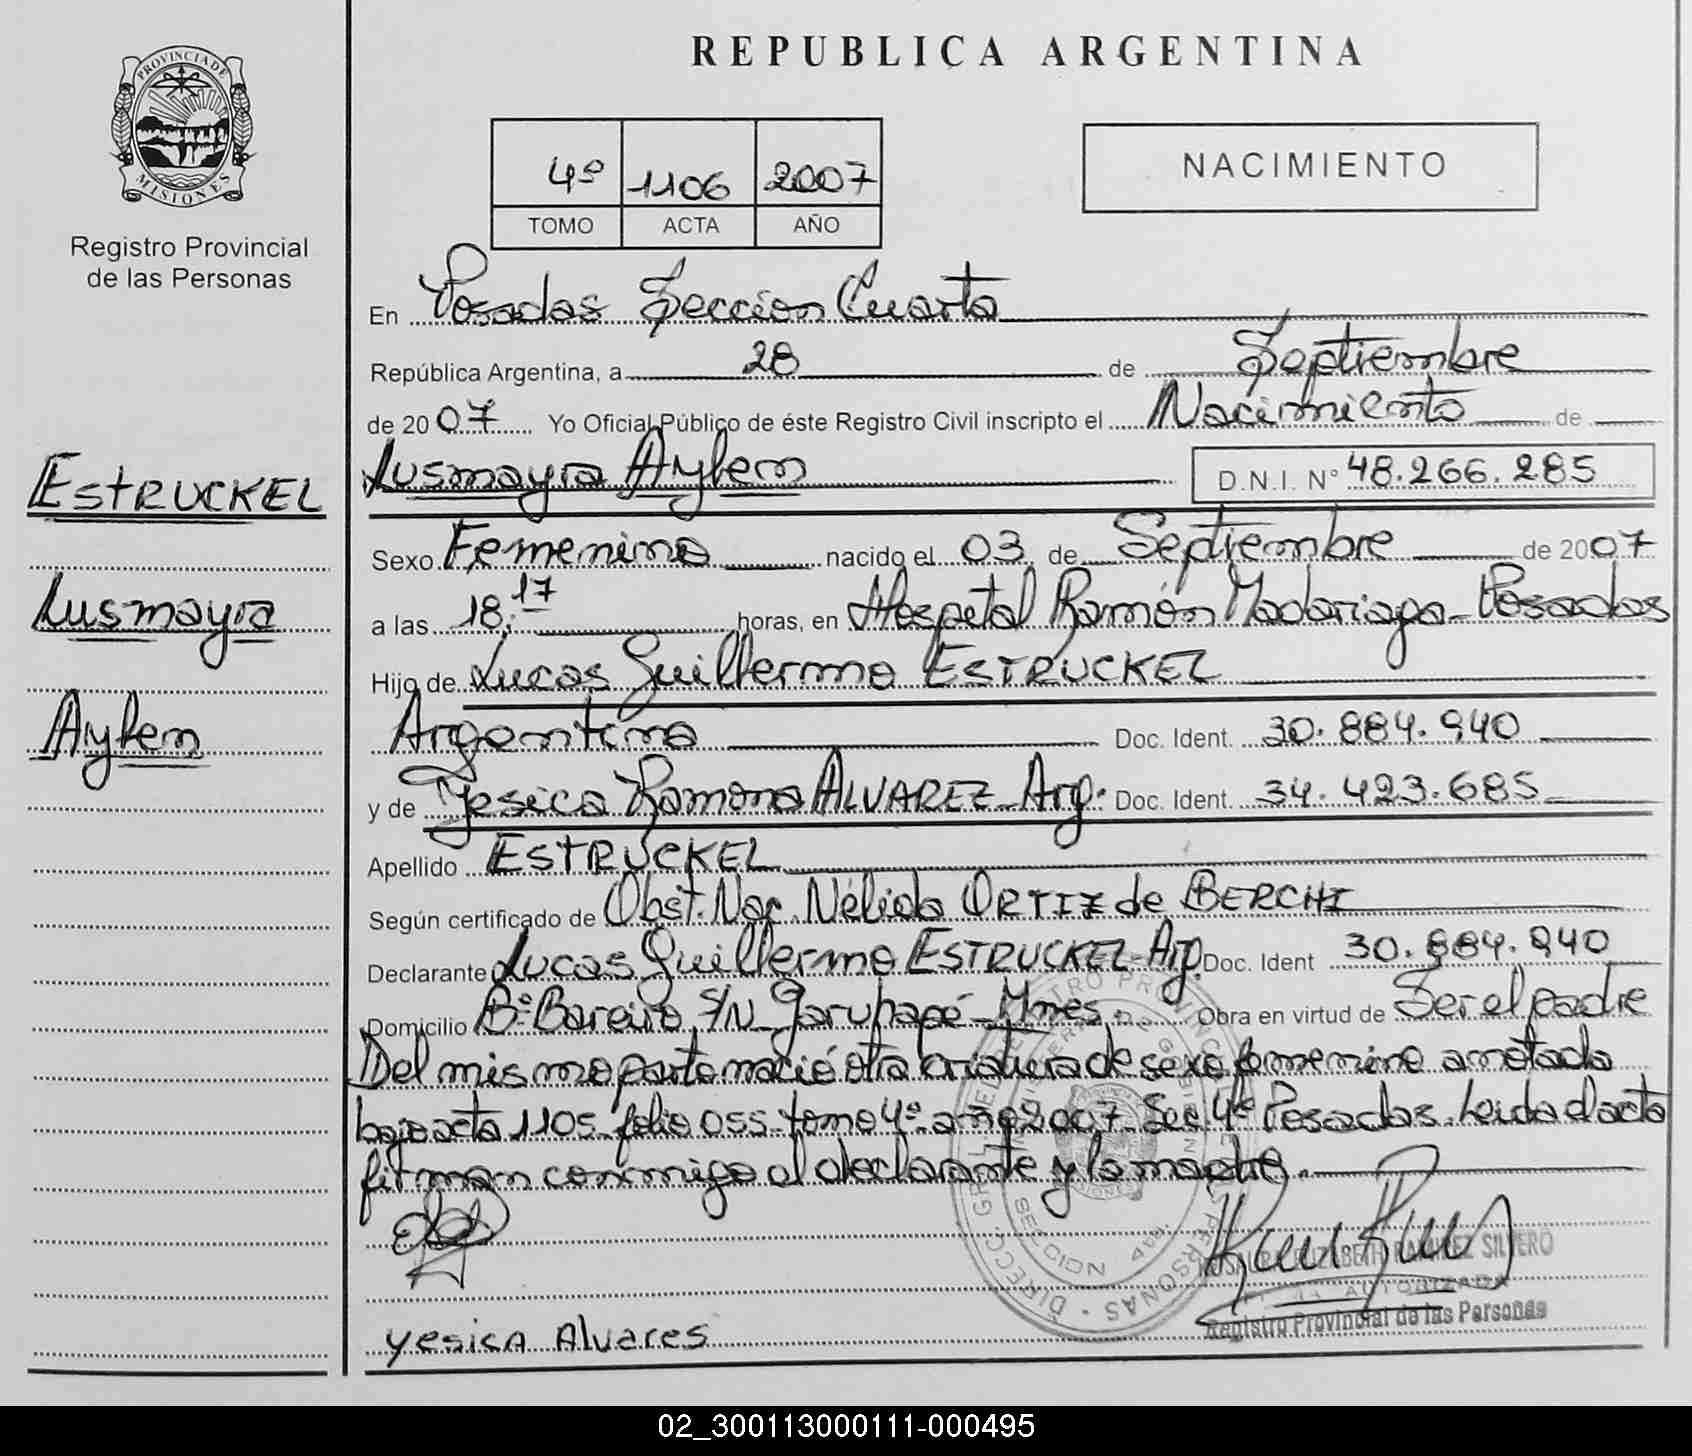 PROVINCIA DE
MISIONES
Registro Provincial
de las Personas
REPUBLICA ARGENTINA
4º 1106 2007
TOMO ACTA AÑO
NACIMIENTO
En Posadas Seccion Cuarta
República Argentina, a 28 de Septiembre
de 2007 Yo Oficial Público de éste Registro Civil inscripto el Nacimiento de
ESTRUCKEL Lusmayra Aylen D.N.I. Nº 48.266.285
Sexo Femenino nacido el 03 de Septiembre de 2007
Lusmayra
a las 18:17 horas, en Hospetal Ramón Madariaga - Posadas
Hijo de Lucas Guillermo ESTRUCKEL
Aylen
Argentino Doc. Ident. 30.884.940
y de Yesica Ramona ALVAREZ Arg. Doc. Ident. 34.423.685
Apellido ESTRUCKEL
Según certificado de Obst. Nac. Nélida ORTIZ de BERCHI
Declarante Lucas Guillermo ESTRUCKEL - Arg. Doc. Ident 30.884.940
Domicilio Bº Bareiro S/N Garuhapé - Mnes. Obra en virtud de Ser el padre
Del mismo parto nació otra criatura de sexo femenino anotada
bajo acta 1105 folio 055 tomo 4º año 2007 Sec 4ta Posadas. Leida el acta
firman conmigo el declarante y la madre.
RAMIREZ SILVERO
AUTORIZADA
Registro Provincial de las Personas
yesica Alvares
02_300113000111-000495